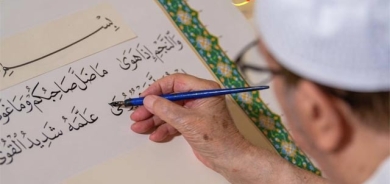 بِسْمِ
وَالنَّجْمِ إِذَا هَوَىٰ مَا ضَلَّ صَاحِبُكُمْ وَمَا
عَلَّمَهُ شَدِيدُ الْقُوَىٰ